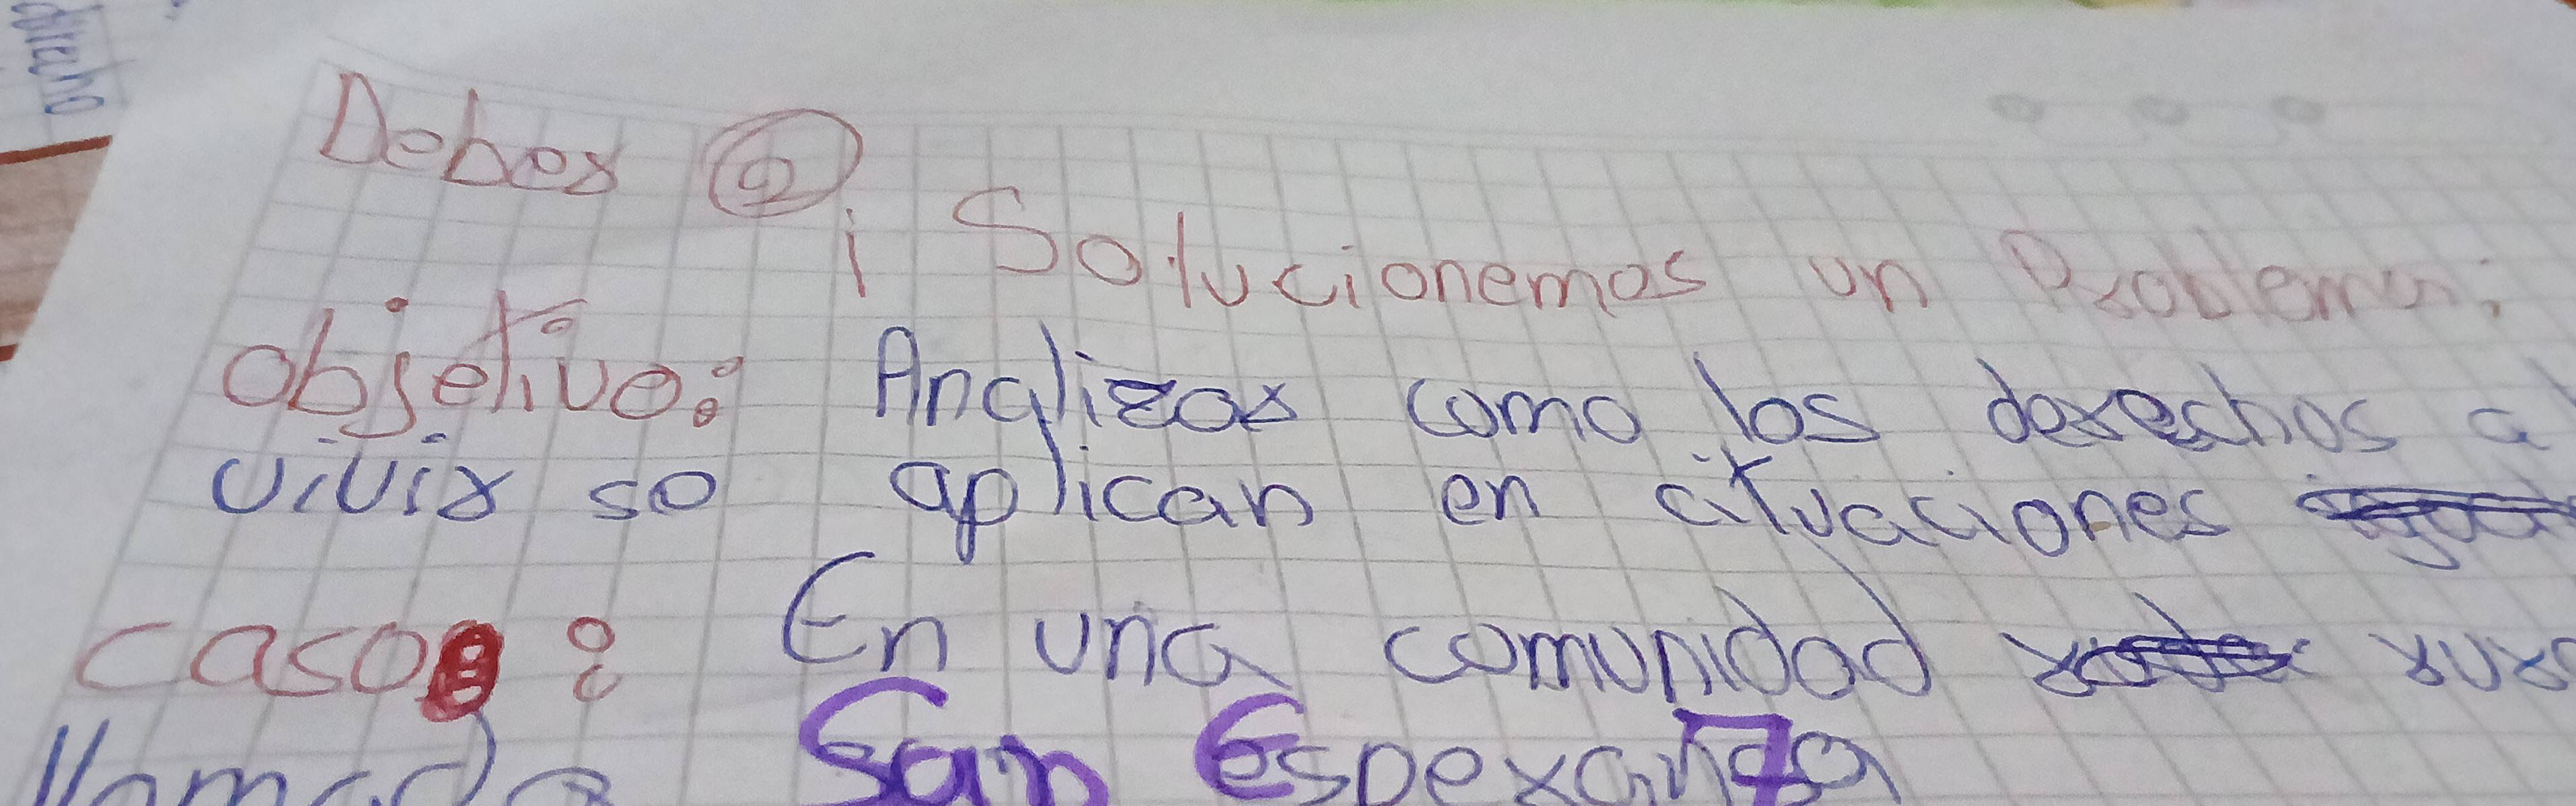 Deber 2
¡Solucionemos un Problema!
objetivo: Analizar como los derechos a
vivir se aplican en cituaciones
caso: En una comunidad
llamada San Esperanza
derecho